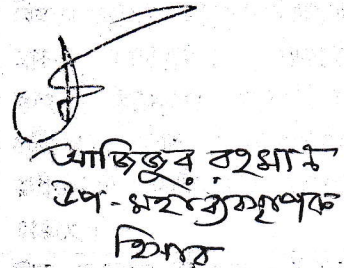 আজিজুর রহমান
উপ-মহাব্যবস্থাপক
হিসাব